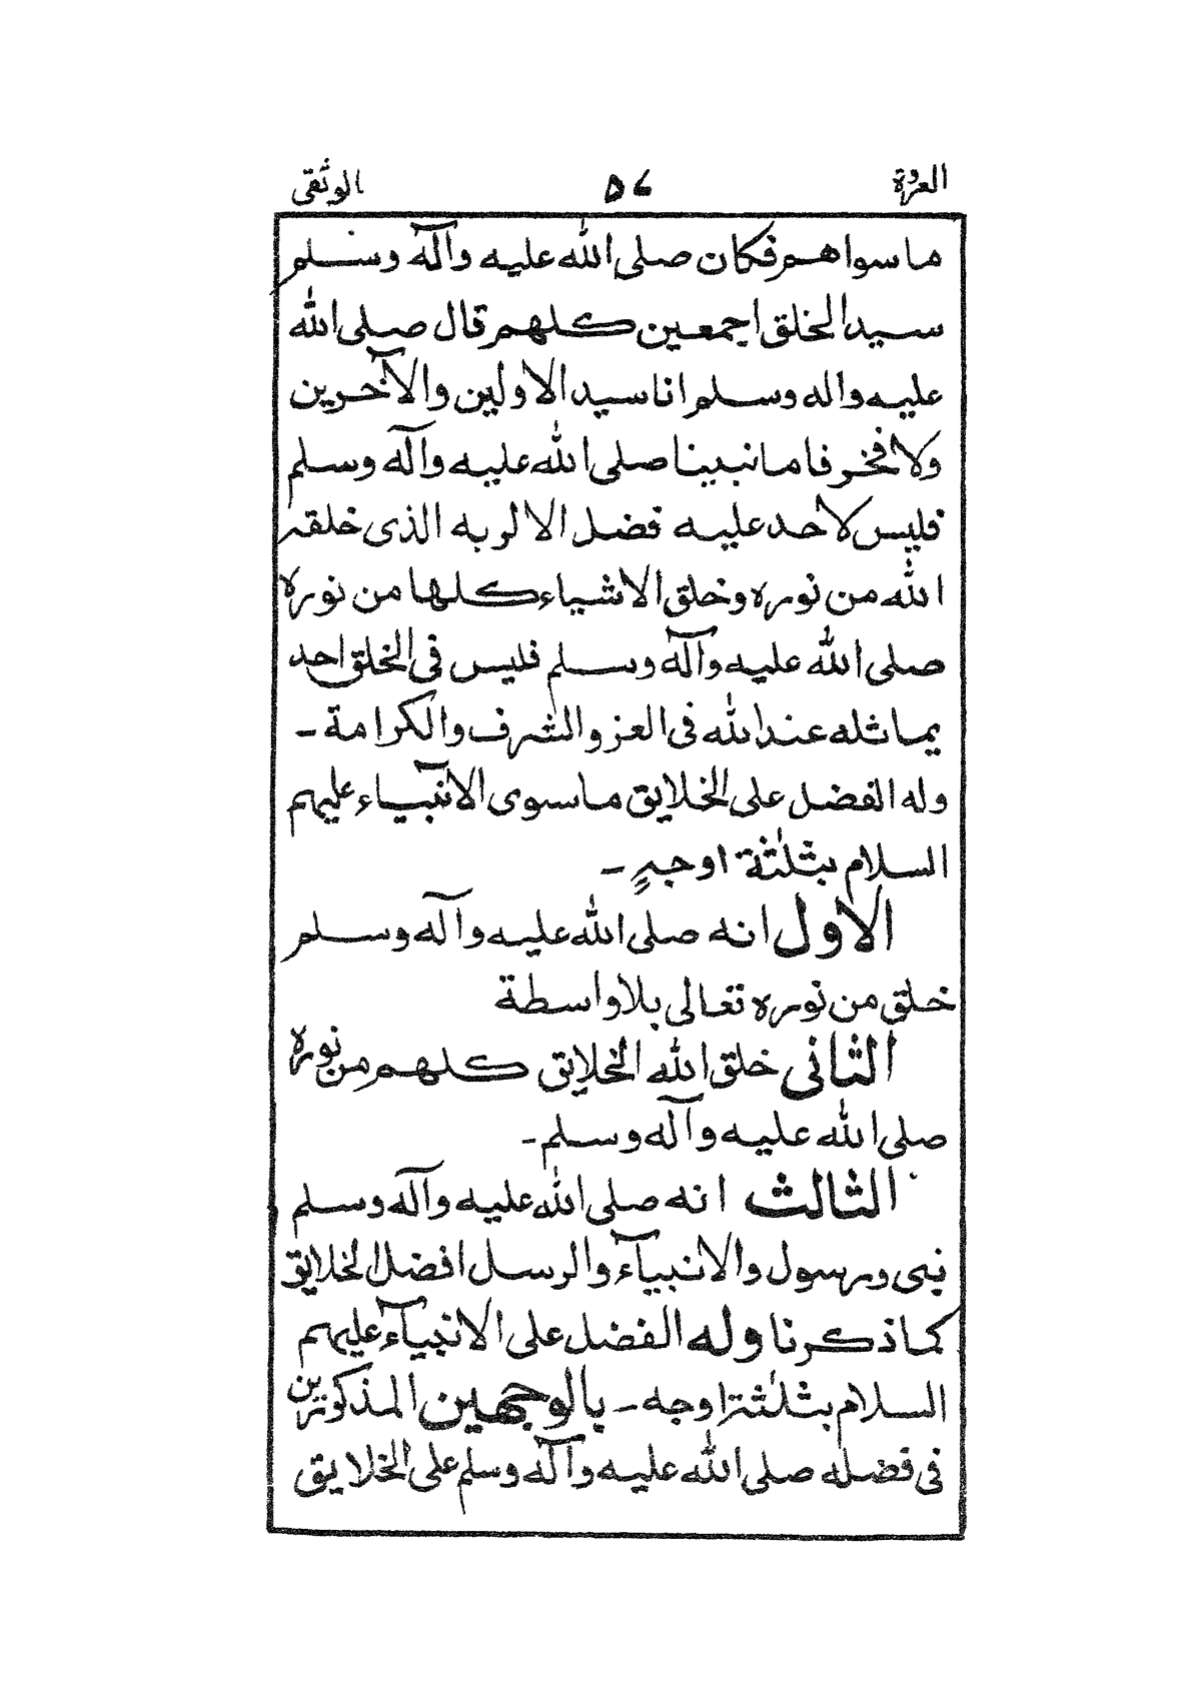 العروة ٥٧ الوثقى
ما سواهم فكان صلى الله عليه وآله وسلم
سيد الخلق اجمعين كلهم قال صلى الله
عليه واله وسلم انا سيد الاولين والآخرين
ولا فخر فاما نبينا صلى الله عليه وآله وسلم
فليس لاحد عليه فضل الا لربه الذى خلقه
الله من نوره وخلق الاشياء كلها من نوره
صلى الله عليه وآله وسلم فليس فى الخلق احد
يماثله عند الله فى العز والشرف والكرامة ـ
وله الفضل على الخلايق ما سوى الانبيآء عليهم
السلام بثلٰثة اوجهٍ ـ
الاول انه صلى الله عليه وآله وسلم
خلق من نوره تعالى بلا واسطة
الثانى خلق الله الخلايق كلهم من نوره
صلى الله عليه وآله وسلم ـ
الثالث انه صلى الله عليه وآله وسلم
نبى ورسول والانبيآء والرسل افضل الخلايق
كما ذكرنا وله الفضل على الانبيآء عليهم
السلام بثلٰثة اوجه ـ بالوجهين المذكورين
فى فضله صلى الله عليه وآله وسلم على الخلايق